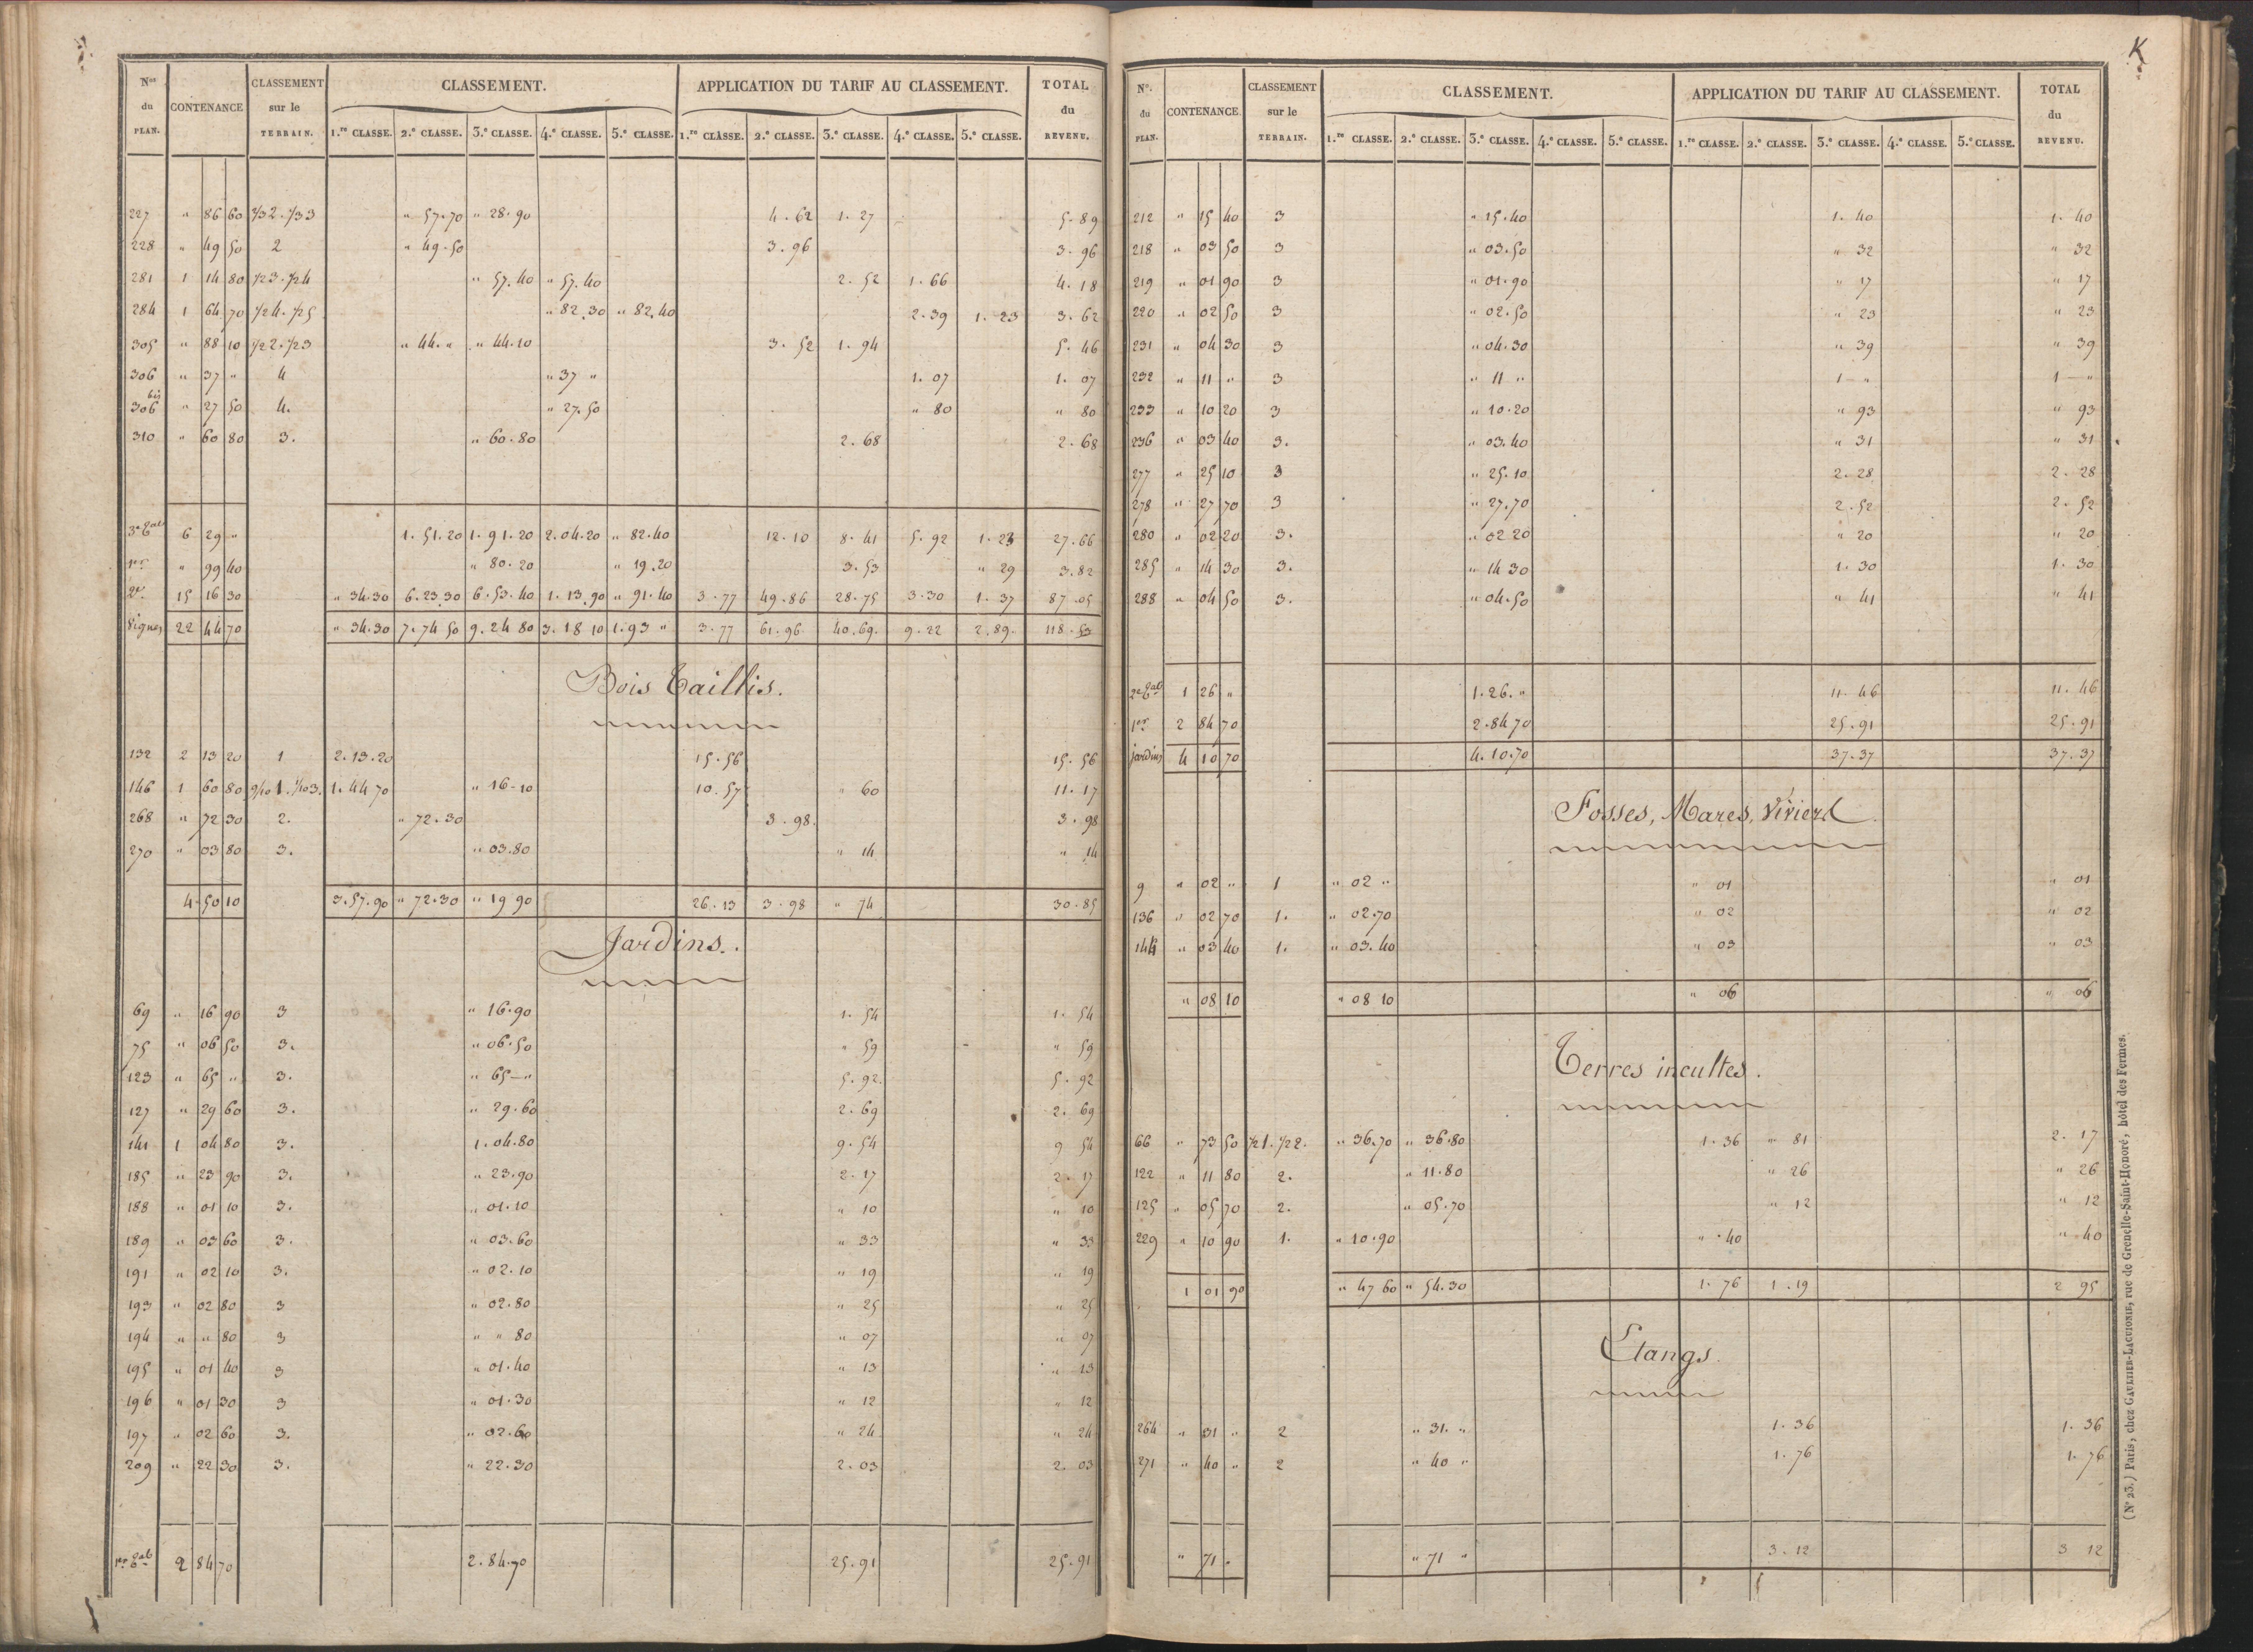 K
Nos du PLAN. CONTENANCE CLASSEMENT sur le TERRAIN. CLASSEMENT. APPLICATION DU TARIF AU CLASSEMENT. TOTAL du REVENU.
1.re CLASSE. 2.e CLASSE. 3.e CLASSE. 4.e CLASSE. 5.e CLASSE. 1.re CLASSE. 2.e CLASSE. 3.e CLASSE. 4.e CLASSE. 5.e CLASSE.
227 " 86 60 2/3 2. 1/3 3 " 57.70 " 28.90 4.62 1.27 5.89
228 " 49 50 2 " 49.50 3.96 3.96
281 1 14 80 1/2 3. 1/2 4 " 57.40 " 57.40 2.52 1.66 4.18
284 1 64 70 1/2 4. 1/2 5 " 82.30 " 82.40 2.39 1.23 3.62
305 " 88 10 1/2 2. 1/2 3 " 44. " " 44.10 3.52 1.94 5.46
306 " 37 " 4 " 37 " 1.07 1.07
306 bis " 27 50 4. " 27.50 " 80 " 80
310 " 60 80 3. " 60.80 2.68 2.68
3e Eal 6 29 " 1.51.20 1.91.20 2.04.20 " 82.40 12.10 8.41 5.92 1.23 27.66
1er " 99 40 " 80.20 " 19.20 3.53 " 29 3.82
2e 15 16 30 " 34.30 6.23.30 6.53.40 1.13.90 " 91.40 3.77 49.86 28.75 3.30 1.37 87.05
Vignes 22 44 70 " 34.30 7.74 50 9.24 80 3.18 10 1.93 " 3.77 61.96 40.69 9.22 2.89 118.53
Bois Taillis.
132 2 13 20 1 2.13.20 15.56 15.56
146 1 60 80 9/10 1. 1/10 3. 1.44 70 " 16.10 10.57 " 60 11.17
268 " 72 30 2. " 72.30 3.98 3.98
270 " 03 80 3. " 03.80 " 14 " 14
4 50 10 3.57.90 " 72.30 " 19 90 26.13 3.98 " 74 30.85
Jardins.
69 " 16 90 3 " 16.90 1.54 1.54
75 " 06 50 3. " 06.50 " 59 " 59
123 " 65 " 3. " 65 — " 5.92 5.92
127 " 29 60 3. " 29.60 2.69 2.69
141 1 04 80 3. 1.04.80 9.54 9 54
185 " 23 90 3. " 23.90 2.17 2.17
188 " 01 10 3. " 01.10 " 10 " 10
189 " 03 60 3. " 03.60 " 33 " 33
191 " 02 10 3. " 02.10 " 19 " 19
193 " 02 80 3 " 02.80 " 25 " 25
194 " " 80 3 " " 80 " 07 " 07
195 " 01 40 3 " 01.40 " 13 " 13
196 " 01 30 3 " 01.30 " 12 " 12
197 " 02 60 3. " 02.60 " 24 " 24
209 " 22 30 3. " 22.30 2.03 2.03
1er Eal 2 84 70 2.84.70 25.91 25.91
N°. du PLAN. CONTENANCE. CLASSEMENT sur le TERRAIN. CLASSEMENT. APPLICATION DU TARIF AU CLASSEMENT. TOTAL du REVENU.
1.re CLASSE. 2.e CLASSE. 3.e CLASSE. 4.e CLASSE. 5.e CLASSE. 1.re CLASSE. 2.e CLASSE. 3.e CLASSE. 4.e CLASSE. 5.e CLASSE.
212 " 15 40 3 " 15.40 1.40 1.40
218 " 03 50 3 " 03.50 " 32 " 32
219 " 01 90 3 " 01.90 " 17 " 17
220 " 02 50 3 " 02.50 " 23 " 23
231 " 04 30 3 " 04.30 " 39 " 39
232 " 11 " 3 " 11 " 1 — " 1 — "
233 " 10 20 3 " 10.20 " 93 " 93
236 " 03 40 3. " 03.40 " 31 " 31
277 " 25 10 3 " 25.10 2.28 2.28
278 " 27 70 3 " 27.70 2.52 2.52
280 " 02 20 3. " 02 20 " 20 " 20
285 " 14 30 3. " 14 30 1.30 1.30
288 " 04 50 3. " 04.50 " 41 " 41
2e Eal 1 26 " 1.26. " 11.46 11.46
1er 2 84 70 2.84 70 25.91 25.91
jardins 4 10 70 4.10.70 37.37 37.37
Fosses, Mares, Viviers.
9 " 02 " 1 " 02 " " 01 " 01
136 " 02 70 1. " 02.70 " 02 " 02
144 " 03 40 1. " 03.40 " 03 " 03
" 08 10 " 08 10 " 06 " 06
Terres incultes.
66 " 73 50 1/2 1. 1/2 2. " 36.70 " 36.80 1.36 " 81 2.17
122 " 11 80 2. " 11.80 " 26 " 26
125 " 05 70 2. " 05.70 " 12 " 12
229 " 10 90 1. " 10.90 " 40 " 40
1 01 90 " 47 60 " 54.30 1.76 1.19 2 95
Etangs.
264 " 31 " 2 " 31. " 1.36 1.36
271 " 40 " 2 " 40 " 1.76 1.76
" 71 " " 71 " 3.12 3 12
(N° 23.) Paris, chez GAULTIER-LAGUIONIE, rue de Grenelle-Saint-Honoré, hôtel des Fermes.